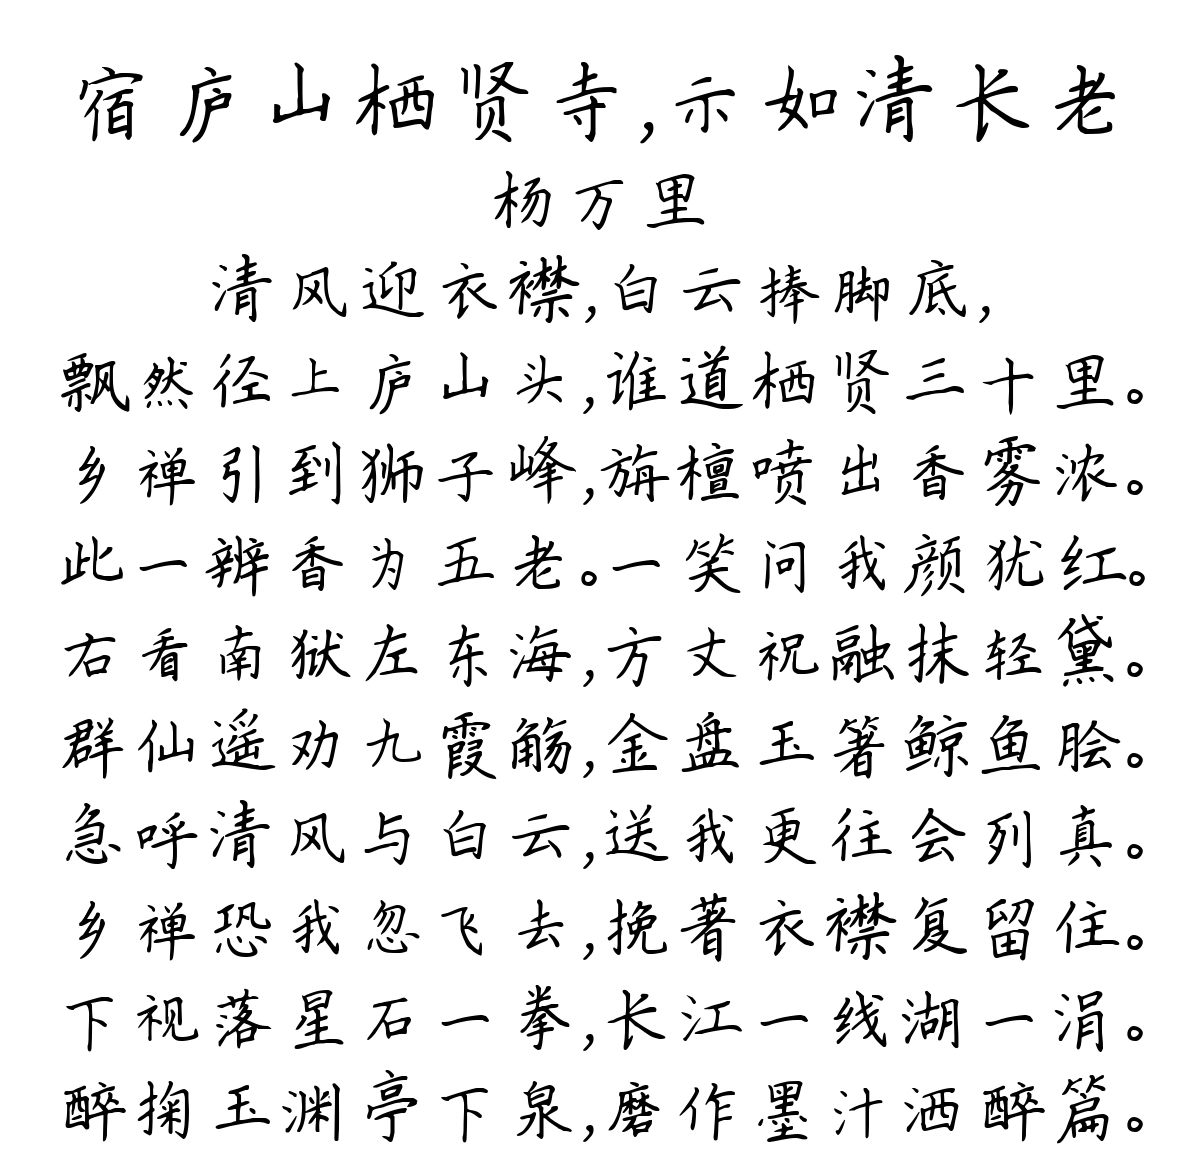 宿庐山栖贤寺,示如清长老
杨万里
清风迎衣襟,白云捧脚底,
飘然径上庐山头,谁道栖贤三十里。
乡禅引到狮子峰,旃檀喷出香雾浓。
此一辨香为五老。一笑问我颜犹红。
右看南狱左东海,方丈祝融抹轻黛。
群仙遥劝九霞觞,金盘玉箸鲸鱼脍。
急呼清风与白云,送我更往会列真。
乡禅恐我忽飞去,挽著衣襟复留住。
下视落星石一拳,长江一线湖一涓。
醉掬玉渊亭下泉,磨作墨汁洒醉篇。